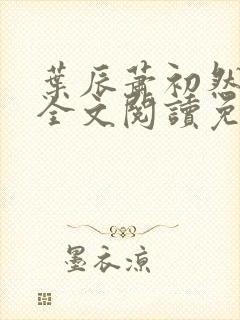 葉辰蕭初然
全文閱讀免
墨衣涼